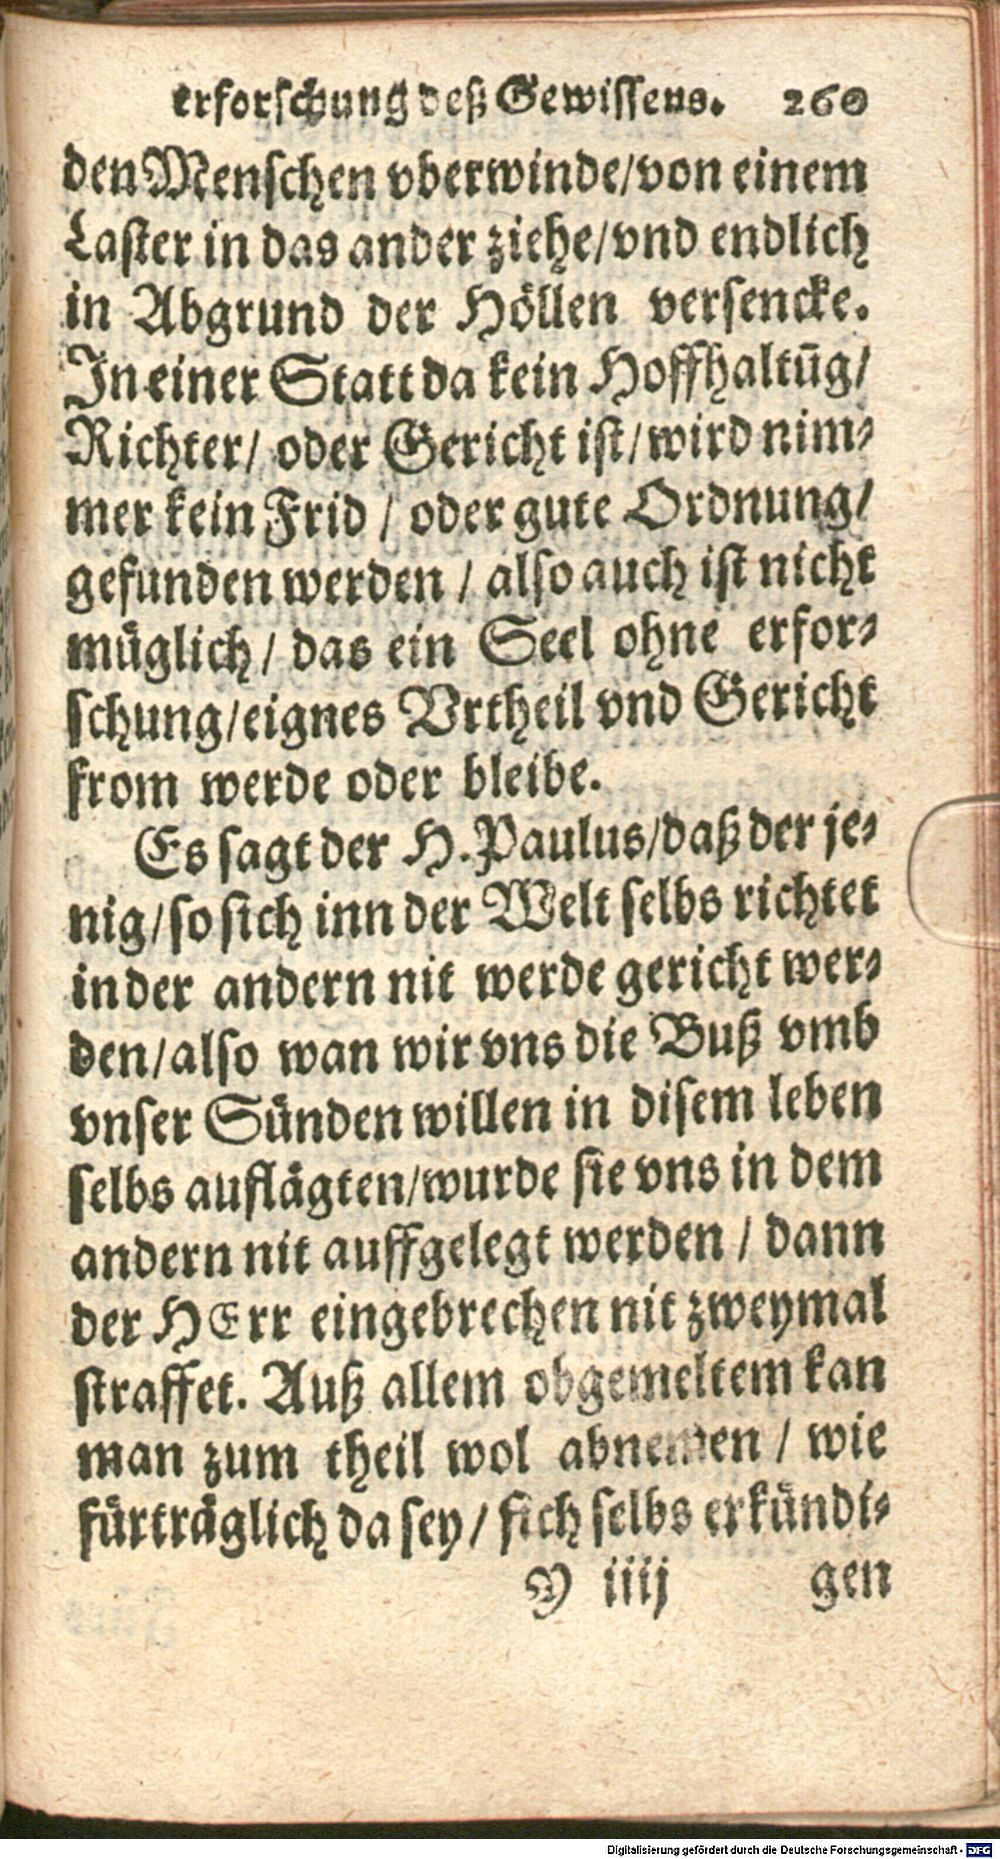 erforschung deß Gewissens. 260
den Menschen vberwinde/von einem
Laster in das ander ziehe/vnd endlich
in Abgrund der Höllen versencke.
In einer Statt da kein Hoffhaltūg/
Richter/ oder Gericht ist/wird nim-
mer kein Frid / oder gute Ordnung/
gefunden werden / also auch ist nicht
müglich/ das ein Seel ohne erfor-
schung/eignes Vrtheil vnd Gericht
from werde oder bleibe.
Es sagt der H. Paulus/daß der je-
nig/so sich inn der Welt selbs richtet
in der andern nit werde gericht wer-
den/also wan wir vns die Buß vmb
vnser Sünden willen in disem leben
selbs auflägten/wurde sie vns in dem
andern nit auffgelegt werden / dann
der HErr eingebrechen nit zweymal
straffet. Auß allem obgemeltem kan
man zum theil wol abnemen / wie
fürträglich da sey/ sich selbs erkündi-
Y iiij gen
Digitalisierung gefördert durch die Deutsche Forschungsgemeinschaft - DFG